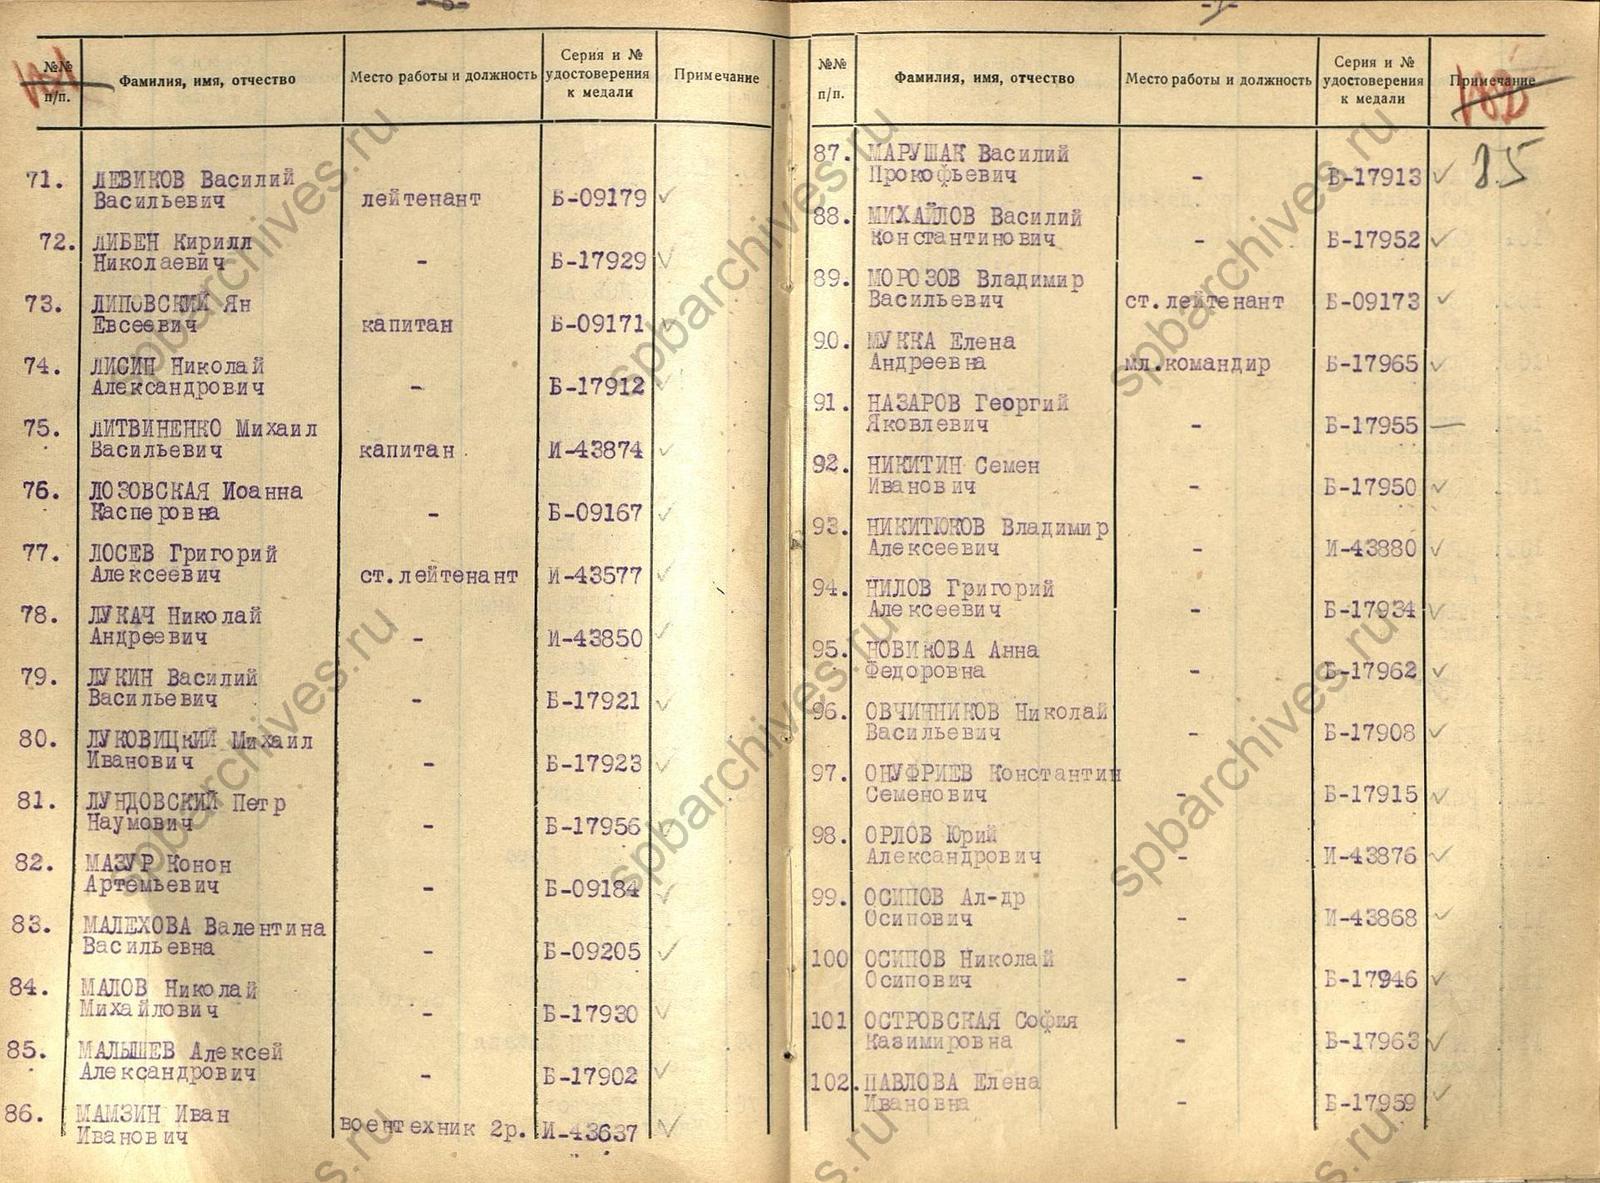 -6-
№№ п/п. Фамилия, имя, отчество Место работы и должность Серия и № удостоверения к медали Примечание
71. ЛЕВИКОВ Василий
Васильевич лейтенант Б-09179
72. ЛИБЕН Кирилл
Николаевич - Б-17929
73. ЛИПОВСКИЙ Ян
Евсеевич капитан Б-09171
74. ЛИСИН Николай
Александрович - Б-17912
75. ЛИТВИНЕНКО Михаил
Васильевич капитан И-43874
76. ЛОЗОВСКАЯ Иоанна
Касперовна - Б-09167
77. ЛОСЕВ Григорий
Алексеевич ст.лейтенант И-43577
78. ЛУКАЧ Николай
Андреевич - И-43850
79. ЛУКИН Василий
Васильевич - Б-17921
80. ЛУКОВИЦКИЙ Михаил
Иванович - Б-17923
81. ЛУНДОВСКИЙ Петр
Наумович - Б-17956
82. МАЗУР Конон
Артемьевич - Б-09184
83. МАЛЕХОВА Валентина
Васильевна - Б-09205
84. МАЛОВ Николай
Михайлович - Б-17930
85. МАЛЫШЕВ Алексей
Александрович - Б-17902
86. МАМЗИН Иван
Иванович воентехник 2р. И-43637
-7-
№№ п/п. Фамилия, имя, отчество Место работы и должность Серия и № удостоверения к медали Примечание
85
87. МАРУШАК Василий
Прокофьевич - Б-17913
88. МИХАЙЛОВ Василий
Константинович - Б-17952
89. МОРОЗОВ Владимир
Васильевич ст.лейтенант Б-09173
90. МУККА Елена
Андреевна мл.командир Б-17965
91. НАЗАРОВ Георгий
Яковлевич - Б-17955
92. НИКИТИН Семен
Иванович - Б-17950
93. НИКИТЮКОВ Владимир
Алексеевич - И-43880
94. НИЛОВ Григорий
Алексеевич - Б-17934
95. НОВИКОВА Анна
Федоровна - Б-17962
96. ОВЧИННИКОВ Николай
Васильевич - Б-17908
97. ОНУФРИЕВ Константин
Семенович - Б-17915
98. ОРЛОВ Юрий
Александрович - И-43876
99. ОСИПОВ Ал-др
Осипович - И-43868
100 ОСИПОВ Николай
Осипович - Б-17946
101 ОСТРОВСКАЯ София
Казимировна - Б-17963
102. ПАВЛОВА Елена
Ивановна - Б-17959
spbarchives.ru